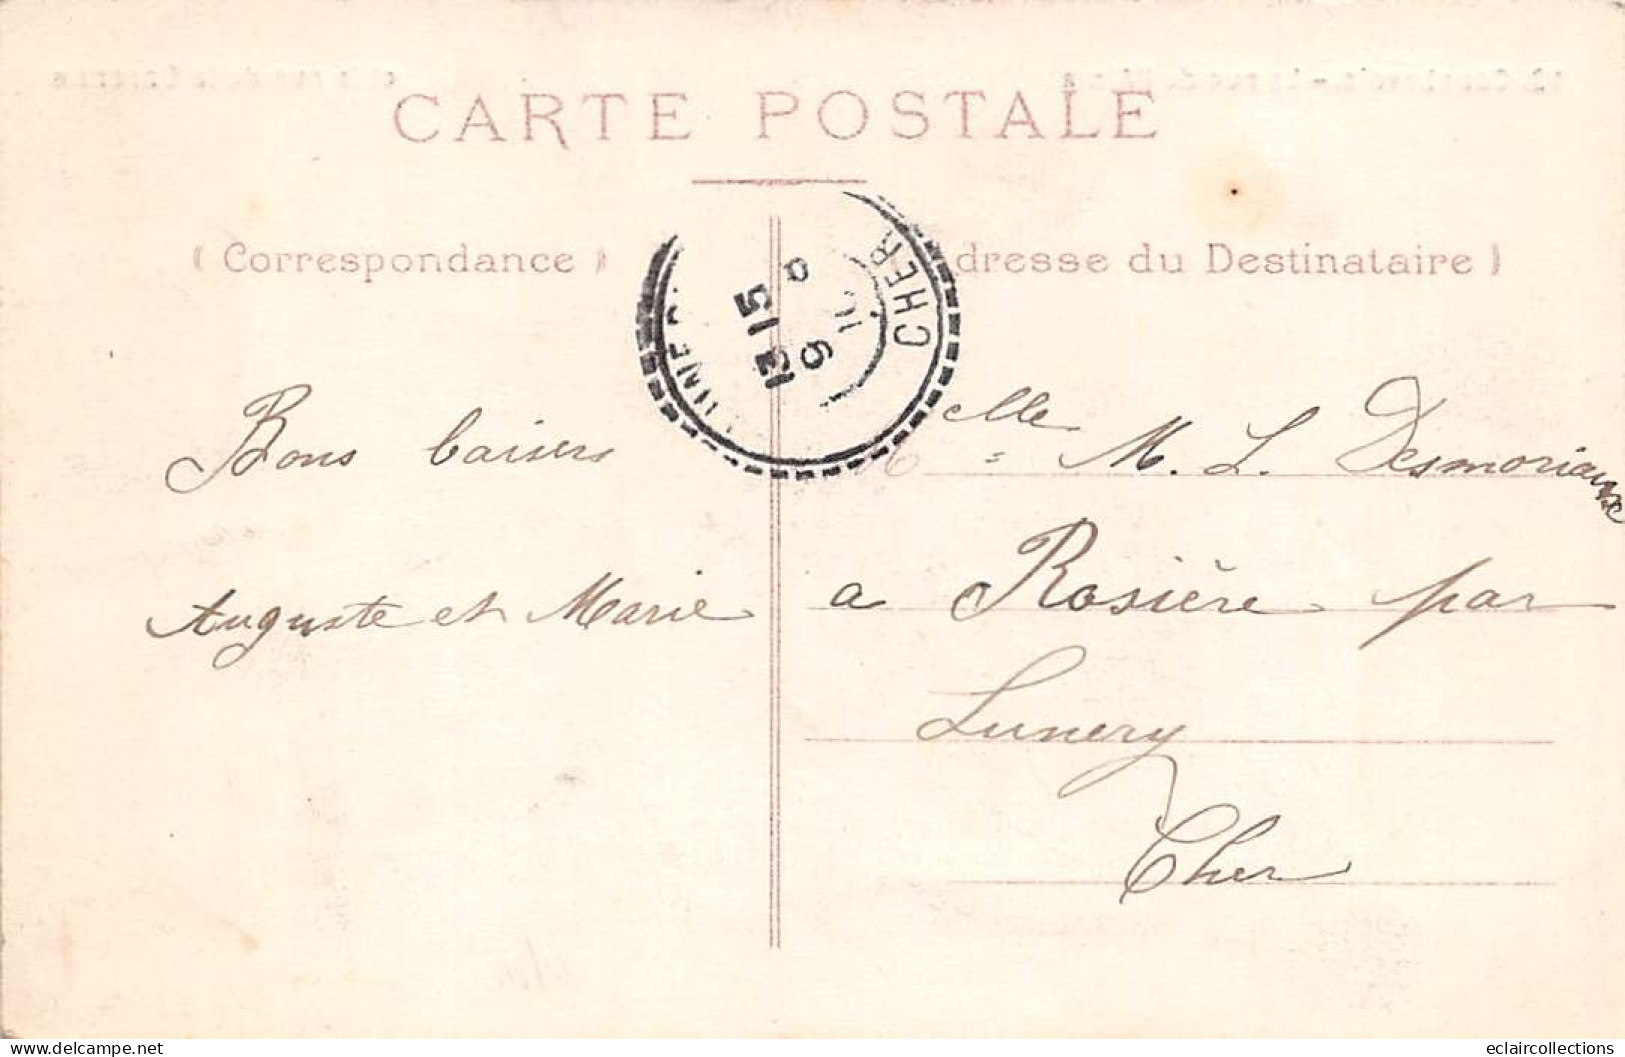 CARTE POSTALE
( Correspondance )
dresse du Destinataire )
CHER
13 15
6
Bons baisers
Auguste et Marie
Mlle M. L. Desmoriaux
a Rosière par
Lunery
Cher
delcampe.net
eclaircollections